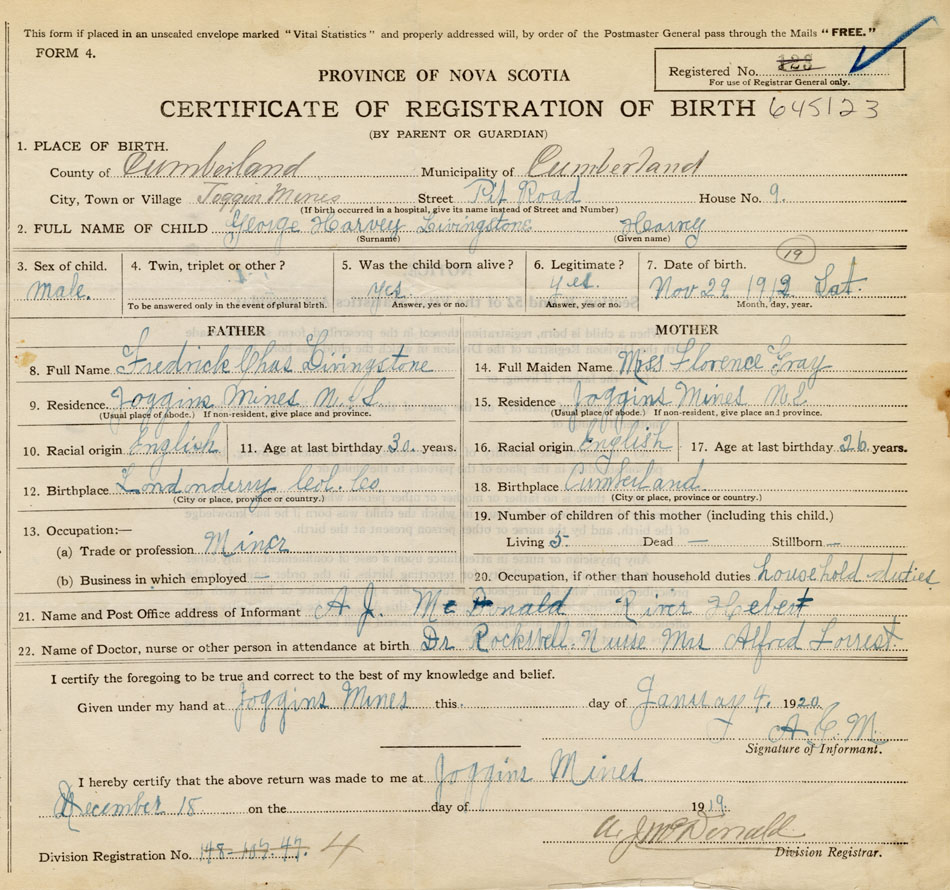 This form if placed in an unsealed envelope marked "Vital Statistics" and properly addressed will, by order of the Postmaster General pass through the Mails "FREE."
FORM 4.
Registered No. 123
For use of Registrar General only.
PROVINCE OF NOVA SCOTIA
CERTIFICATE OF REGISTRATION OF BIRTH 645123
(BY PARENT OR GUARDIAN)
1. PLACE OF BIRTH.
County of Cumberland Municipality of Cumberland
City, Town or Village Joggin Mines Street Pit Road House No. 9.
(If birth occurred in a hospital, give its name instead of Street and Number)
2. FULL NAME OF CHILD George Harvey Livingstone Harvey
(Surname) (Given name)
3. Sex of child. 4. Twin, triplet or other? 5. Was the child born alive? 6. Legitimate? 7. Date of birth. 19
male. yes. yes. Nov 29 1919 Sat.
To be answered only in the event of plural birth. Answer, yes or no. Answer, yes or no. Month, day, year.
FATHER MOTHER
8. Full Name Fredrick Chas Livingstone 14. Full Maiden Name Miss Florence Gray
9. Residence Joggins Mines N.S. 15. Residence Joggins Mines N.S
(Usual place of abode.) If non-resident, give place and province. (Usual place of abode.) If non-resident, give place and province.
10. Racial origin English 11. Age at last birthday 30. years. 16. Racial origin English 17. Age at last birthday 26 years.
12. Birthplace Londonderry Col. Co 18. Birthplace Cumberland
(City or place, province or country.) (City or place, province or country.)
13. Occupation:— 19. Number of children of this mother (including this child.)
(a) Trade or profession Miner Living 5. Dead — Stillborn —
(b) Business in which employed — 20. Occupation, if other than household duties household duties
21. Name and Post Office address of Informant A J. McDonald River Hebert
22. Name of Doctor, nurse or other person in attendance at birth Dr Rockwell. Nurse Mrs Alfred Forrest.
I certify the foregoing to be true and correct to the best of my knowledge and belief.
Given under my hand at Joggins Mines this day of January 4. 1920
Signature of Informant.
I hereby certify that the above return was made to me at Joggins Mines
December 15 on the day of 1919.
A. J. McDonald
Division Registrar.
Division Registration No. 4